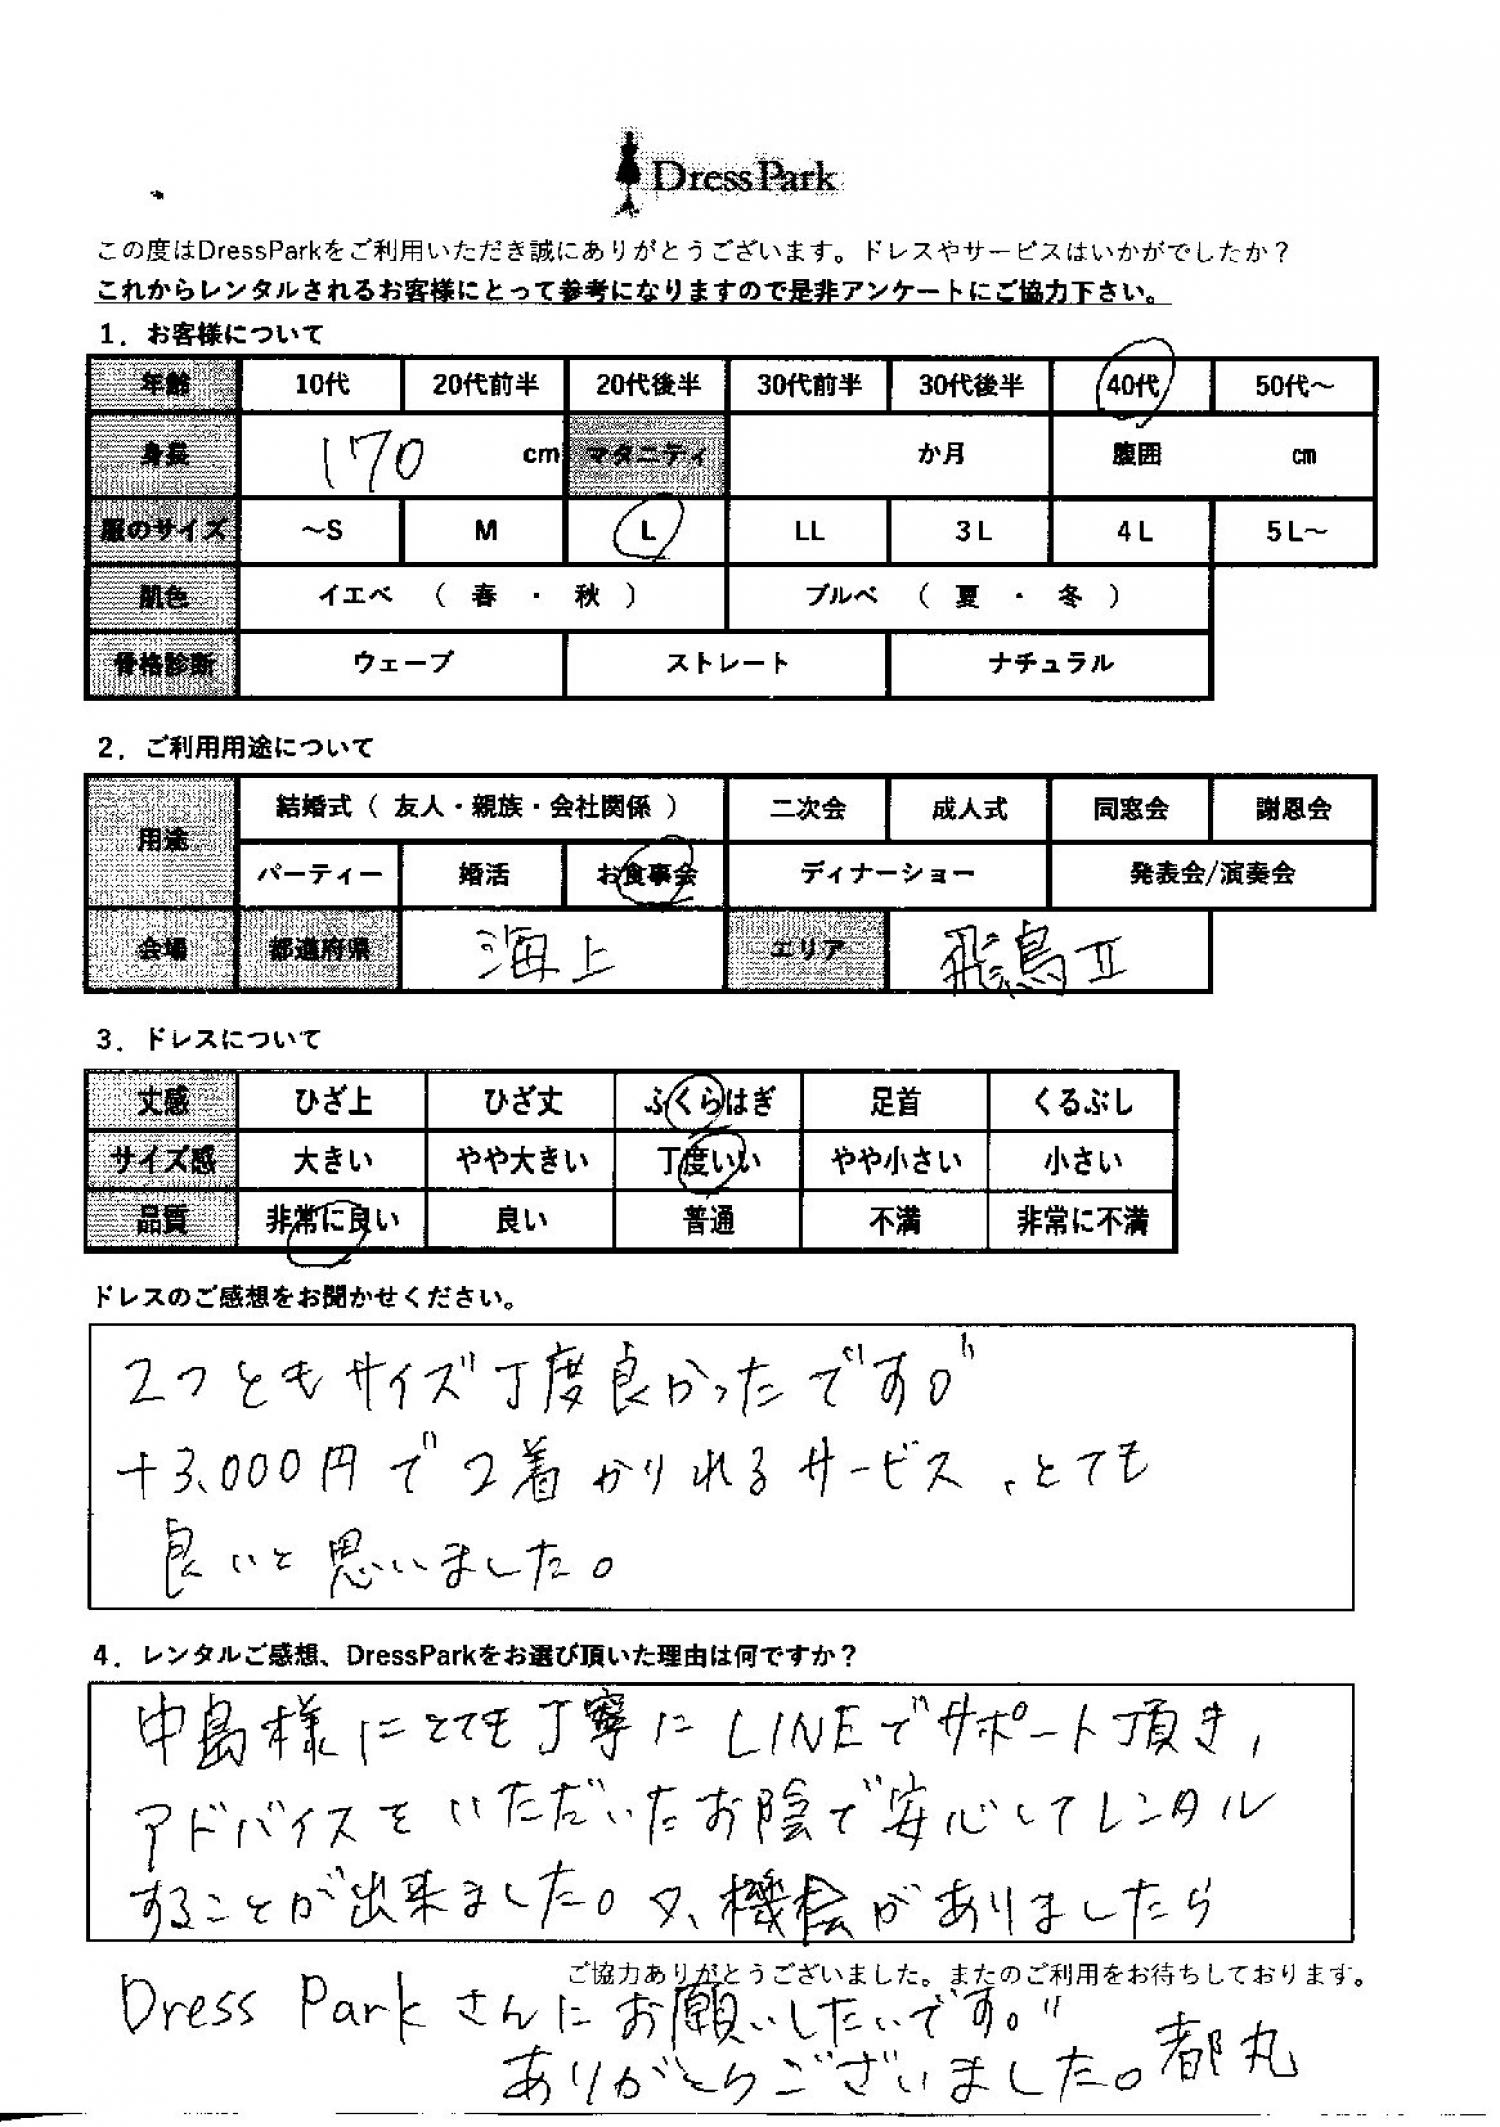 DressPark
この度はDressParkをご利用いただき誠にありがとうございます。ドレスやサービスはいかがでしたか？
これからレンタルされるお客様にとって参考になりますので是非アンケートにご協力下さい。
1．お客様について
年齢 10代 20代前半 20代後半 30代前半 30代後半 40代 50代～
身長 170 cm マタニティ か月 腹囲 cm
服のサイズ ～S M L LL 3L 4L 5L～
肌色 イエベ （ 春 ・ 秋 ） ブルベ （ 夏 ・ 冬 ）
骨格診断 ウェーブ ストレート ナチュラル
2．ご利用用途について
用途 結婚式（ 友人・親族・会社関係 ） 二次会 成人式 同窓会 謝恩会
パーティー 婚活 お食事会 ディナーショー 発表会/演奏会
会場 都道府県 海上 エリア 飛鳥Ⅱ
3．ドレスについて
丈感 ひざ上 ひざ丈 ふくらはぎ 足首 くるぶし
サイズ感 大きい やや大きい 丁度いい やや小さい 小さい
品質 非常に良い 良い 普通 不満 非常に不満
ドレスのご感想をお聞かせください。
2つともサイズ丁度良かったです。
+3,000円で2着かりれるサービス、とても
良いと思いました。
4．レンタルご感想、DressParkをお選び頂いた理由は何ですか？
中島様にとても丁寧にLINEでサポート頂き,
アドバイスをいただいたお陰で安心してレンタル
することが出来ました。又、機会がありましたら
ご協力ありがとうございました。またのご利用をお待ちしております。
Dress Parkさんにお願いしたいです。
ありがとうございました。都丸